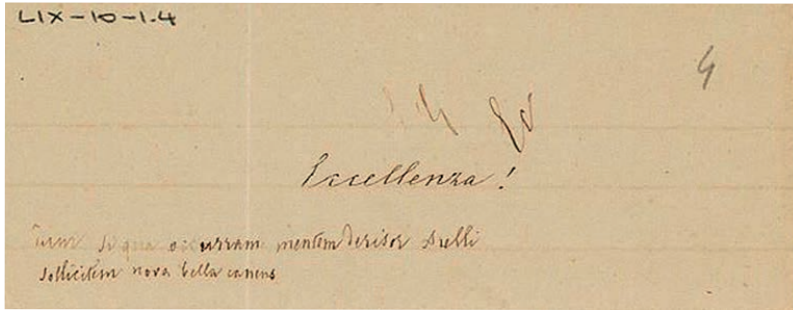 LIX-10-1.4
4
Eccellenza!
si qua occurram mentem derisor
sollicitem nova bella canens